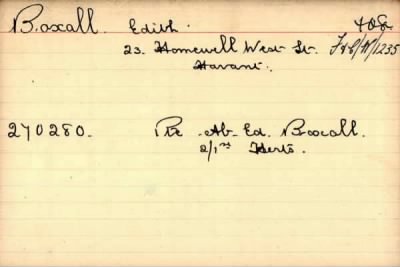 Boxall. Edith. 408
23. Homewell West St. F&B/W/1235
Havant.
270280. Pte Ab. Ed. Boxall.
2/1st Herts